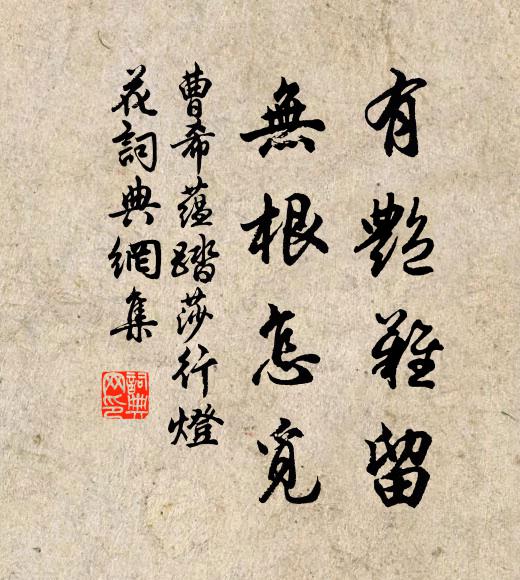 有艷難留
無根怎覓
曹希蘊踏莎行燈
花詞典網集
詞典
网印